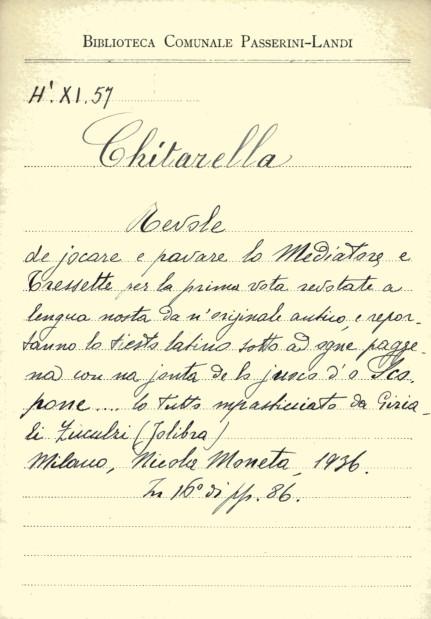 BIBLIOTECA COMUNALE PASSERINI-LANDI
H'. XI. 57
Chitarella
Revole
de jocare e pavare lo Mediatore e
Tressette per la prima vota revotate a
lengua nosta da n'originale antico, e repor-
tanno lo tiesto latino sotto ad ogne pagge-
na con na jonta de lo juoco d'o Sco-
pone.... lo tutto mpasticciato da
(Jolibra)
Milano, Nicola Moneta, 1936.
In 16° di pp. 86.